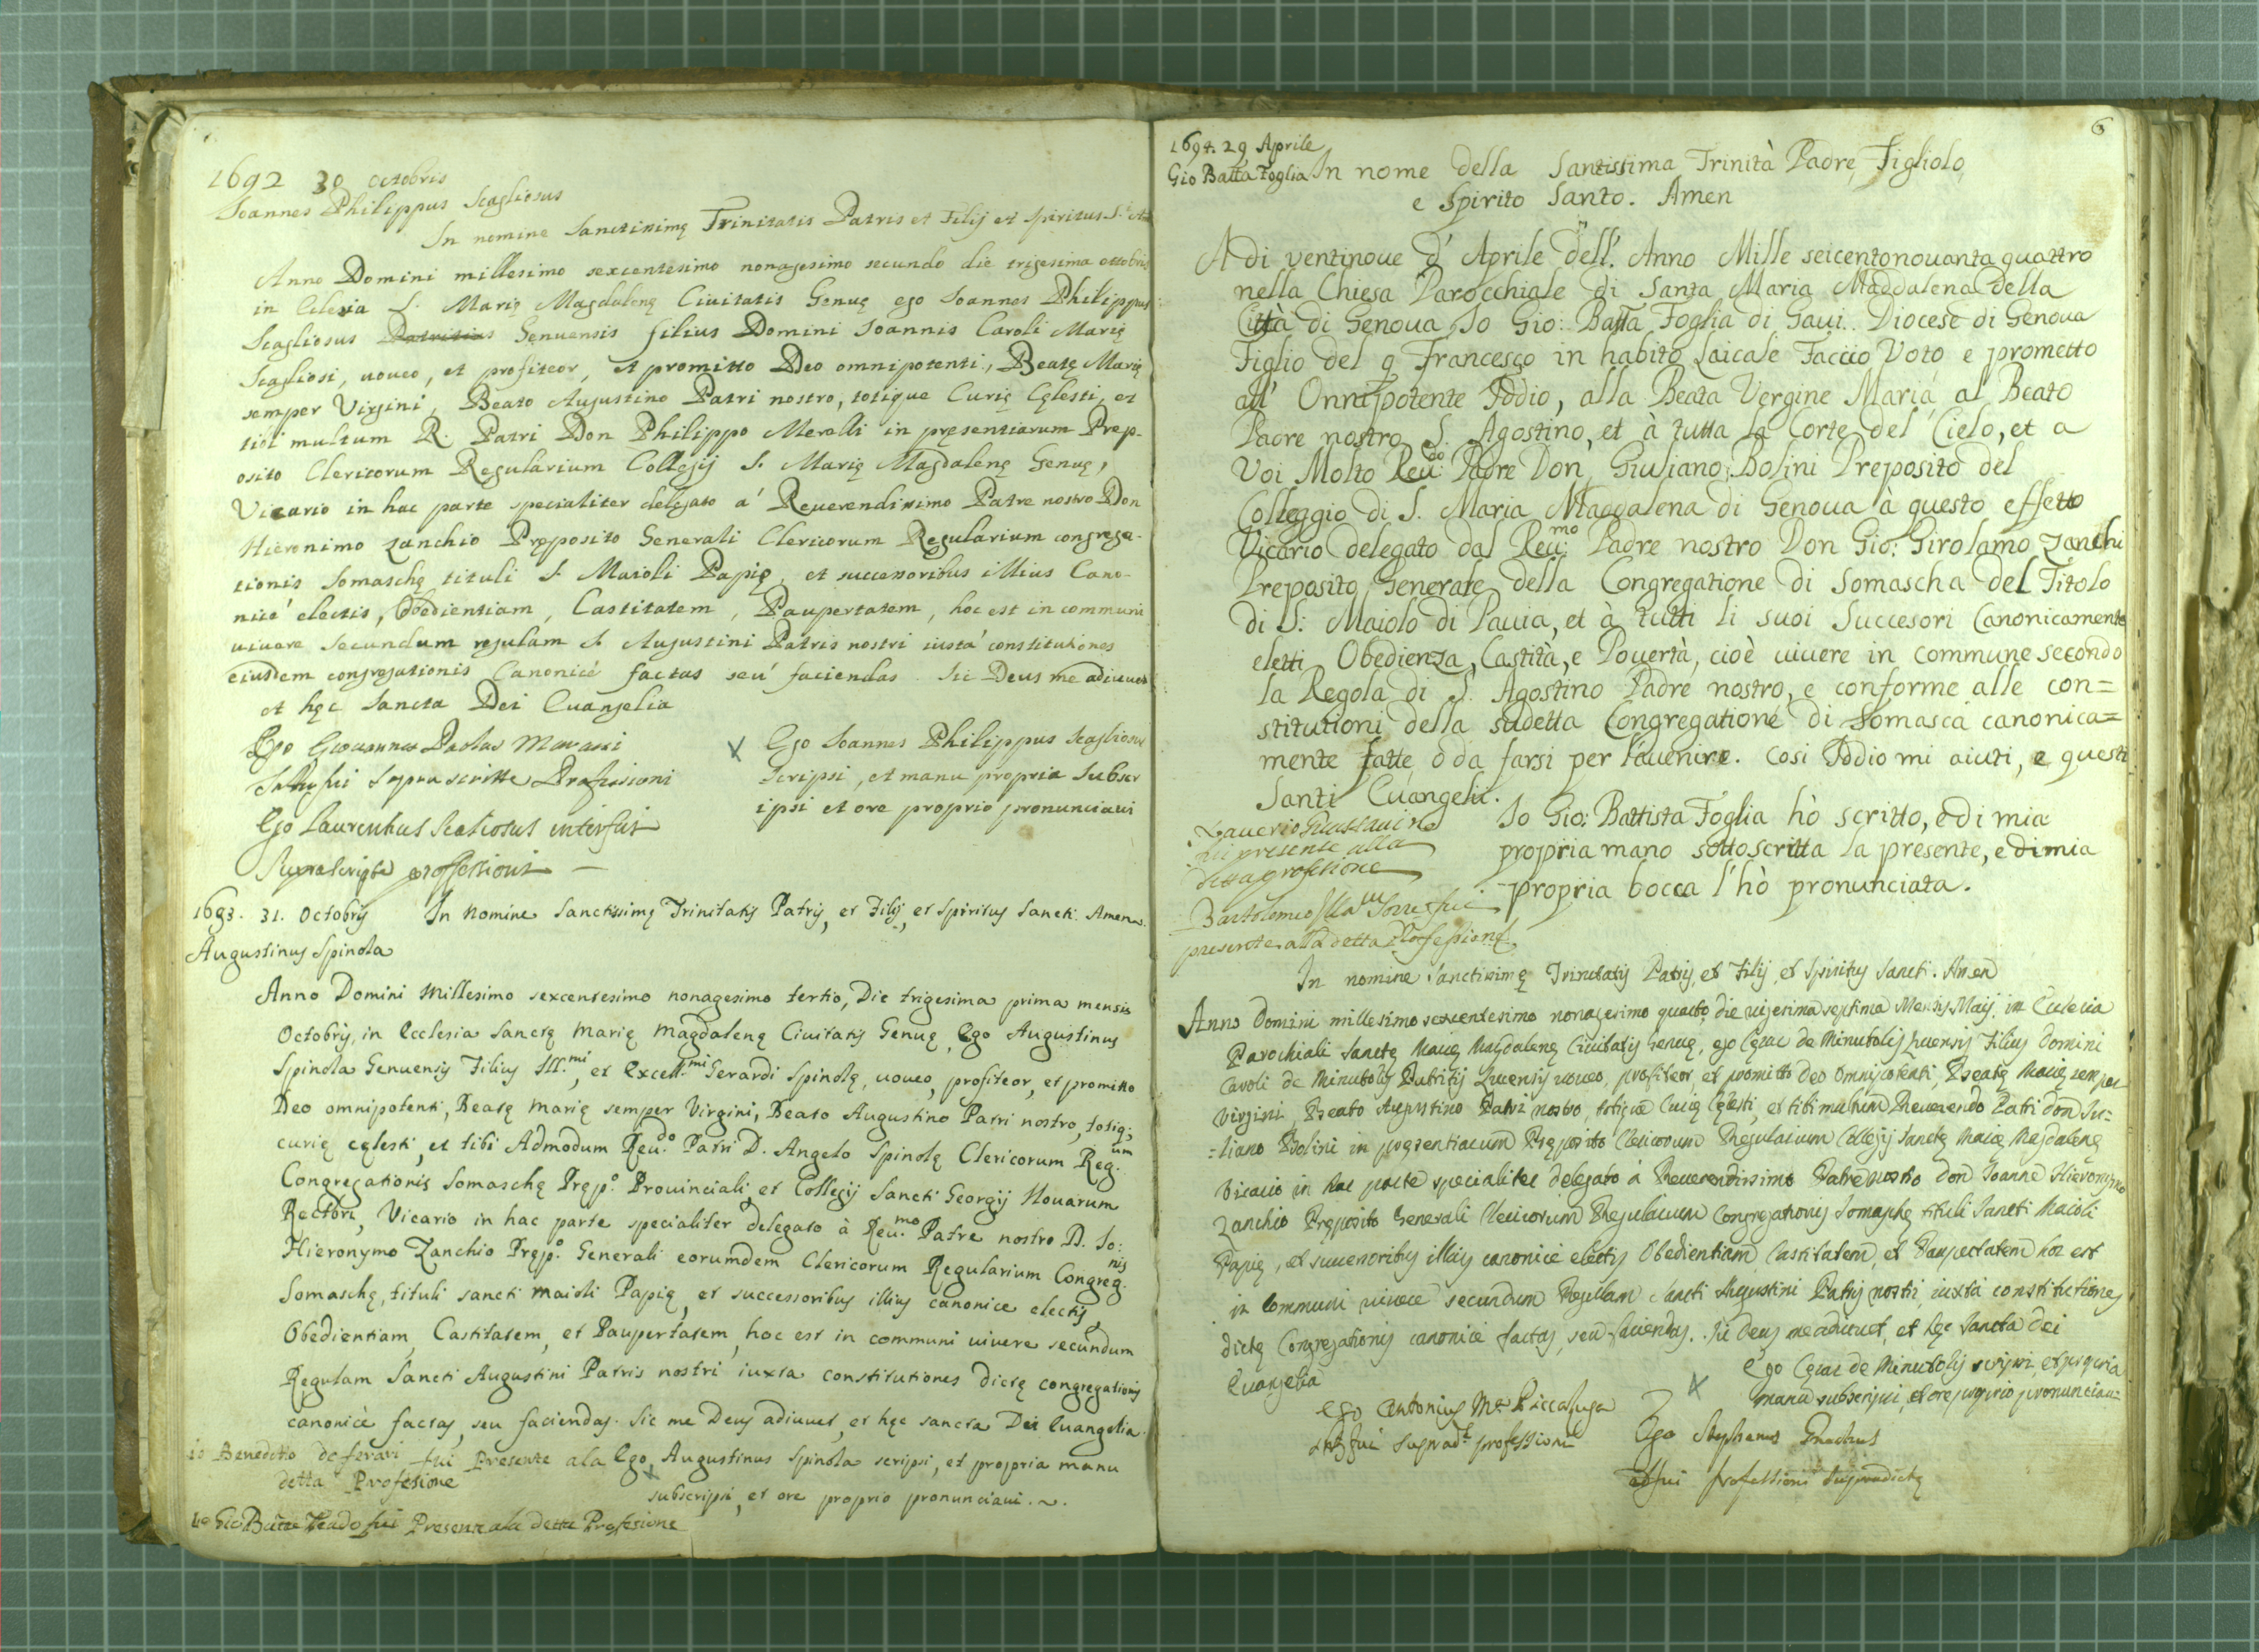 1692 30 octobris
Ioannes Philippus Scagliosus
In nomine Sanctissimę Trinitatis Patris et Filij et Spiritus S.ti
Anno Domini millesimo sexcentesimo nonagesimo secundo die trigesima ottobris
in Eclesia S. Marię Magdalenę Ciuitatis Genuę ego Ioannes Philippus
Scagliosus Patritius Genuensis filius Domini Ioannis Caroli Marię
Scagliosi, uoueo, et profiteor, et promitto Deo omnipotenti, Beatę Marię
semper Virgini, Beato Augustino Patri nostro, totique Curię Cęlesti, et
tibi multum R. Patri Don Philippo Merelli in pręsentiarum Prep-
osito Clericorum Regularium Collegij S. Marię Magdalenę Genuę,
Vicario in hac parte specialiter delegato a' Reuerendissimo Patre nostro Don
Hieronimo Zanchio Pręposito Generali Clericorum Regularium congrega-
tionis Somaschę tituli S. Maioli Papię, et successoribus illius Cano-
nice' electis, Obedientiam, Castitatem, Paupertatem, hoc est in communi
uiuere secundum regulam S. Augustini Patris nostri iusta' constitutiones
eiusdem congregationis Canonicè factas seu' faciendas. Sic Deus me adiuuet
et hęc Sancta Dei Euangelia
Ego Giouannes Paolus Marassi
fui supra scritte Professioni
Ego Laurentius Scaliosus interfui
suprascriptę professioni
X Ego Ioannes Philippus Scagliosus
scripsi, et manu propria subscr
ipsi et ore proprio pronunciaui
1693. 31. Octobris In Nomine Sanctissimę Trinitatis Patris, et Filij, et Spiritus Sancti. Amen.
Augustinus Spinola
Anno Domini Millesimo sexcentesimo nonagesimo tertio, Die trigesima prima mensis
Octobris, in Ecclesia Sanctę Marię Magdalenę Ciuitatis Genuę, Ego Augustinus
Spinola Genuensis Filius Ill.mi, et Excell.mi Gerardi Spinolę, uoueo, profiteor, et promitto
Deo omnipotenti, Beatę Marię semper Virgini, Beato Augustino Patri nostro, totiq;
curię cęlesti, et tibi Admodum Reu.do Patri D. Angelo Spinolę Clericorum Reg.um
Congregationis Somaschę Pręp.o Prouinciali, et Collegij Sancti Georgij Nouarum
Rectori, Vicario in hac parte specialiter delegato à Reu.mo Patre nostro D. Io:
Hieronymo Zanchio Pręp.o Generali eorumdem Clericorum Regularium Congreg.nis
Somaschę, tituli sancti maioli Papię, et successoribus illius canonice electis,
Obedientiam, Castitatem, et Paupertatem, hoc est in communi uiuere secundum
Regulam Sancti Augustini Patris nostri iuxta constitutiones dictę congregationis
canonicè factas, seu faciendas. Sic me Deus adiuuet, et hęc sancta Dei Euangelia.
io Benedetto de ferari fui Presente ala
detta Profesione
Ego Augustinus Spinola scripsi, et propria manu
X subscripsi, et ore proprio pronunciaui.
Io Gio Batta fui Presente ala detta Profesione
6
1694. 29 Aprile
Gio Batta Foglia
In nome della Santissima Trinità Padre, Figliolo,
e Spirito Santo. Amen
A di ventinoue d' Aprile dell' Anno Mille seicentonouanta quattro
nella Chiesa Parocchiale di Santa Maria Maddalena della
Città di Genoua, Io Gio: Batta Foglia di Gaui. Diocese di Genoua
Figlio del q Francesco in habito Laicale Faccio Voto e prometto
all' Onnipotente Iddio, alla Beata Vergine Maria, al Beato
Padre nostro S. Agostino, et à tutta la Corte del Cielo, et a
Voi Molto Reu:do Padre Don Giuliano Bolini Preposito del
Colleggio di S. Maria Maddalena di Genoua à questo effetto
Vicario delegato dal Reu:mo Padre nostro Don Gio: Girolamo Zanchi
Preposito Generale della Congregatione di Somascha del Titolo
di S: Maiolo di Pauia, et à tutti li suoi Succesori Canonicamente
eletti Obedienza, Castità, e Pouertà, cioè uiuere in commune secondo
la Regola di S. Agostino Padre nostro, e conforme alle con=
stitutioni della sudetta Congregatione di Somasca canonica=
mente fatte, ò da farsi per l'auenire. Cosi Iddio mi aiuti, e questi
Santi Euangelii.
Io Gio: Battista Foglia hò scritto, e di mia
propria mano sottoscritta la presente, e di mia
propria bocca l'hò pronunciata.
fui presente alla
detta profetione
Bartolomeo fui
presente alla detta Professione
In nomine sanctissimę Trinitatis Patris, et Filij, et Spiritus Sancti. Amen
Anno Domini millesimo sexcentesimo nonagesimo quarto, die uigesima septima Mensis Maij, in Ecclesia
Parochiali Sanctę Marię Magdalenę Ciuitatis Genuę, ego Cęsar de Minutolis Lucensis Filius Domini
Caroli de Minutolis Patritij Lucensis uoueo, profiteor, et promitto Deo Omnipotenti, Beatę Marię semper
Virgini Beato Augustino Patri nostro, totique Curię Cęlesti, et tibi multum Reuerendo Patri don Iu=
=liano Bolini in pręsentiarum Pręposito Clericorum Regularium Collegij Sanctę Marię Magdalenę
Vicario in hac parte specialiter delegato à Reuerendissimo Patre nostro don Ioanne Hieronymo
Zanchio Pręposito Generali Clericorum Regularium Congregationis Somaschę tituli Sancti Maioli
Papię, et successoribus illius canonicè electis Obedientiam, Castitatem, et Paupertatem hoc est
in Communi uiuere secundum Regulam Sancti Augustini Patris nostri, iuxtà constitutiones
dictę Congregationis canonicè factas, seu faciendas. Sic Deus me adiuuet, et hęc sancta Dei
Euangelia
Ego Cęsar de Minutolis scripsi, et propria
X manu subscripsi, et ore proprio pronunciaui
Ego Antonius M.a Piccaluga
fui suprad.ę professioni
Ego Stephanus
adfui professioni supradictę